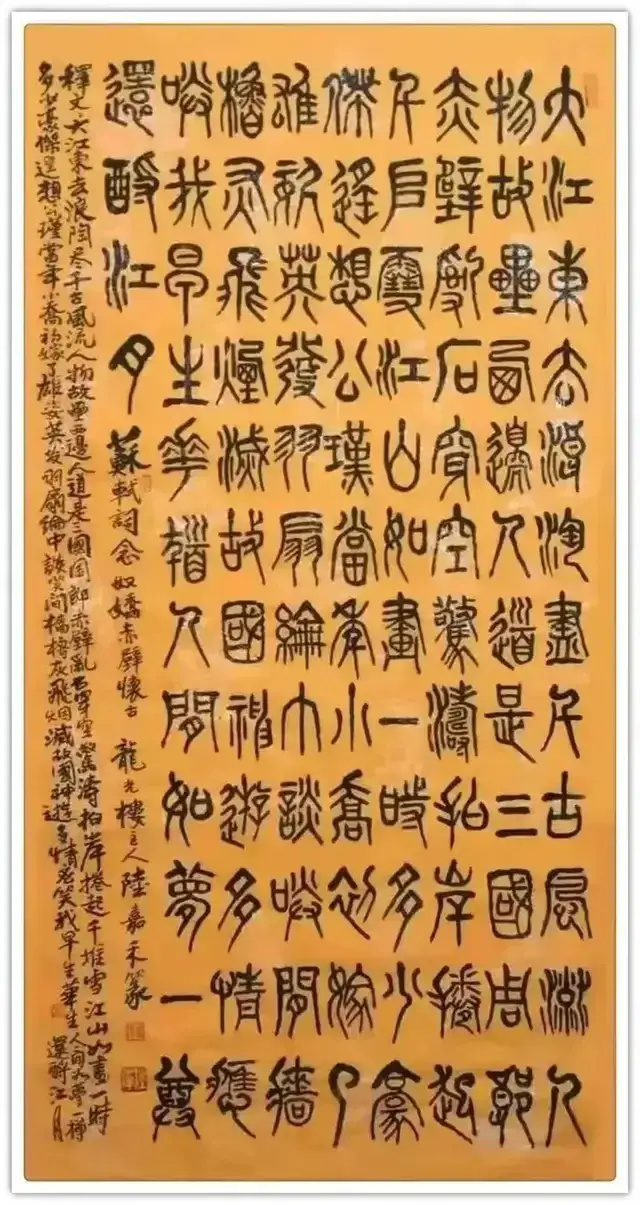 大江東去浪淘盡千古風流人
物故壘西邊人道是三國周郎
赤壁亂石穿空驚濤拍岸捲起
千堆雪江山如畫一時多少豪
傑遙想公瑾當年小喬初嫁了
雄姿英發羽扇綸巾談笑間檣
櫓灰飛煙滅故國神遊多情應
笑我早生華髮人間如夢一尊
還酹江月
蘇軾詞念奴嬌赤壁懷古 龍光樓主人陸嘉禾篆
釋文大江東去浪陶尽千古風流人物故壘西邊人道是三國周郎赤壁亂石穿空驚濤拍岸捲起千堆雪江山如畫一時
多少豪傑遙想公瑾當年小喬初嫁了雄姿英发羽扇綸巾談笑间檣櫓灰飛烟滅故國神遊多情笑我早生華人间如夢一樽
還酹江月